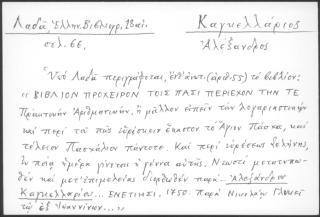 Λαδᾶ, Ἑλλην. Βιβλιογρ. 18 αἰ.
σελ. 66.
Καγκελλάριος
Ἀλέξανδρος
Ὑπὸ Λαδᾶ περιγράφεται, (ἀριθ. 55) τὸ βιβλίον:
"ΒΙΒΛΙΟΝ ΠΡΟΧΕΙΡΟΝ ΤΟΙΣ ΠΑΣΙ ΠΕΡΙΕΧΟΝ ΤΗΝ ΤΕ
Πρακτικὴν Ἀριθμητικήν, ἢ μᾶλλον εἰπεῖν τὸν λογαριαστικὴν
καὶ περὶ τοῦ πῶς εὑρίσκειν ἕκαστον τὸ Ἅγιον Πάσχα, καὶ
τέλειον Πασχάλιον πάντοτε. Καὶ περὶ εὑρέσεως σελήνης,
ἐν ποίᾳ ἡμέρᾳ γίνεται ἡ γέννα αὐτῆς. Νεωστὶ μετατυπω-
θὲν καὶ μετ' ἐπιμελείας διορθωθὲν παρὰ... Ἀλεξάνδρου
Καγκελλαρίου... ΕΝΕΤΙΗΣΙ, 1750. Παρὰ Νικολάῳ Γλυκεῖ
τῷ ἐξ Ἰωαννίνων..."